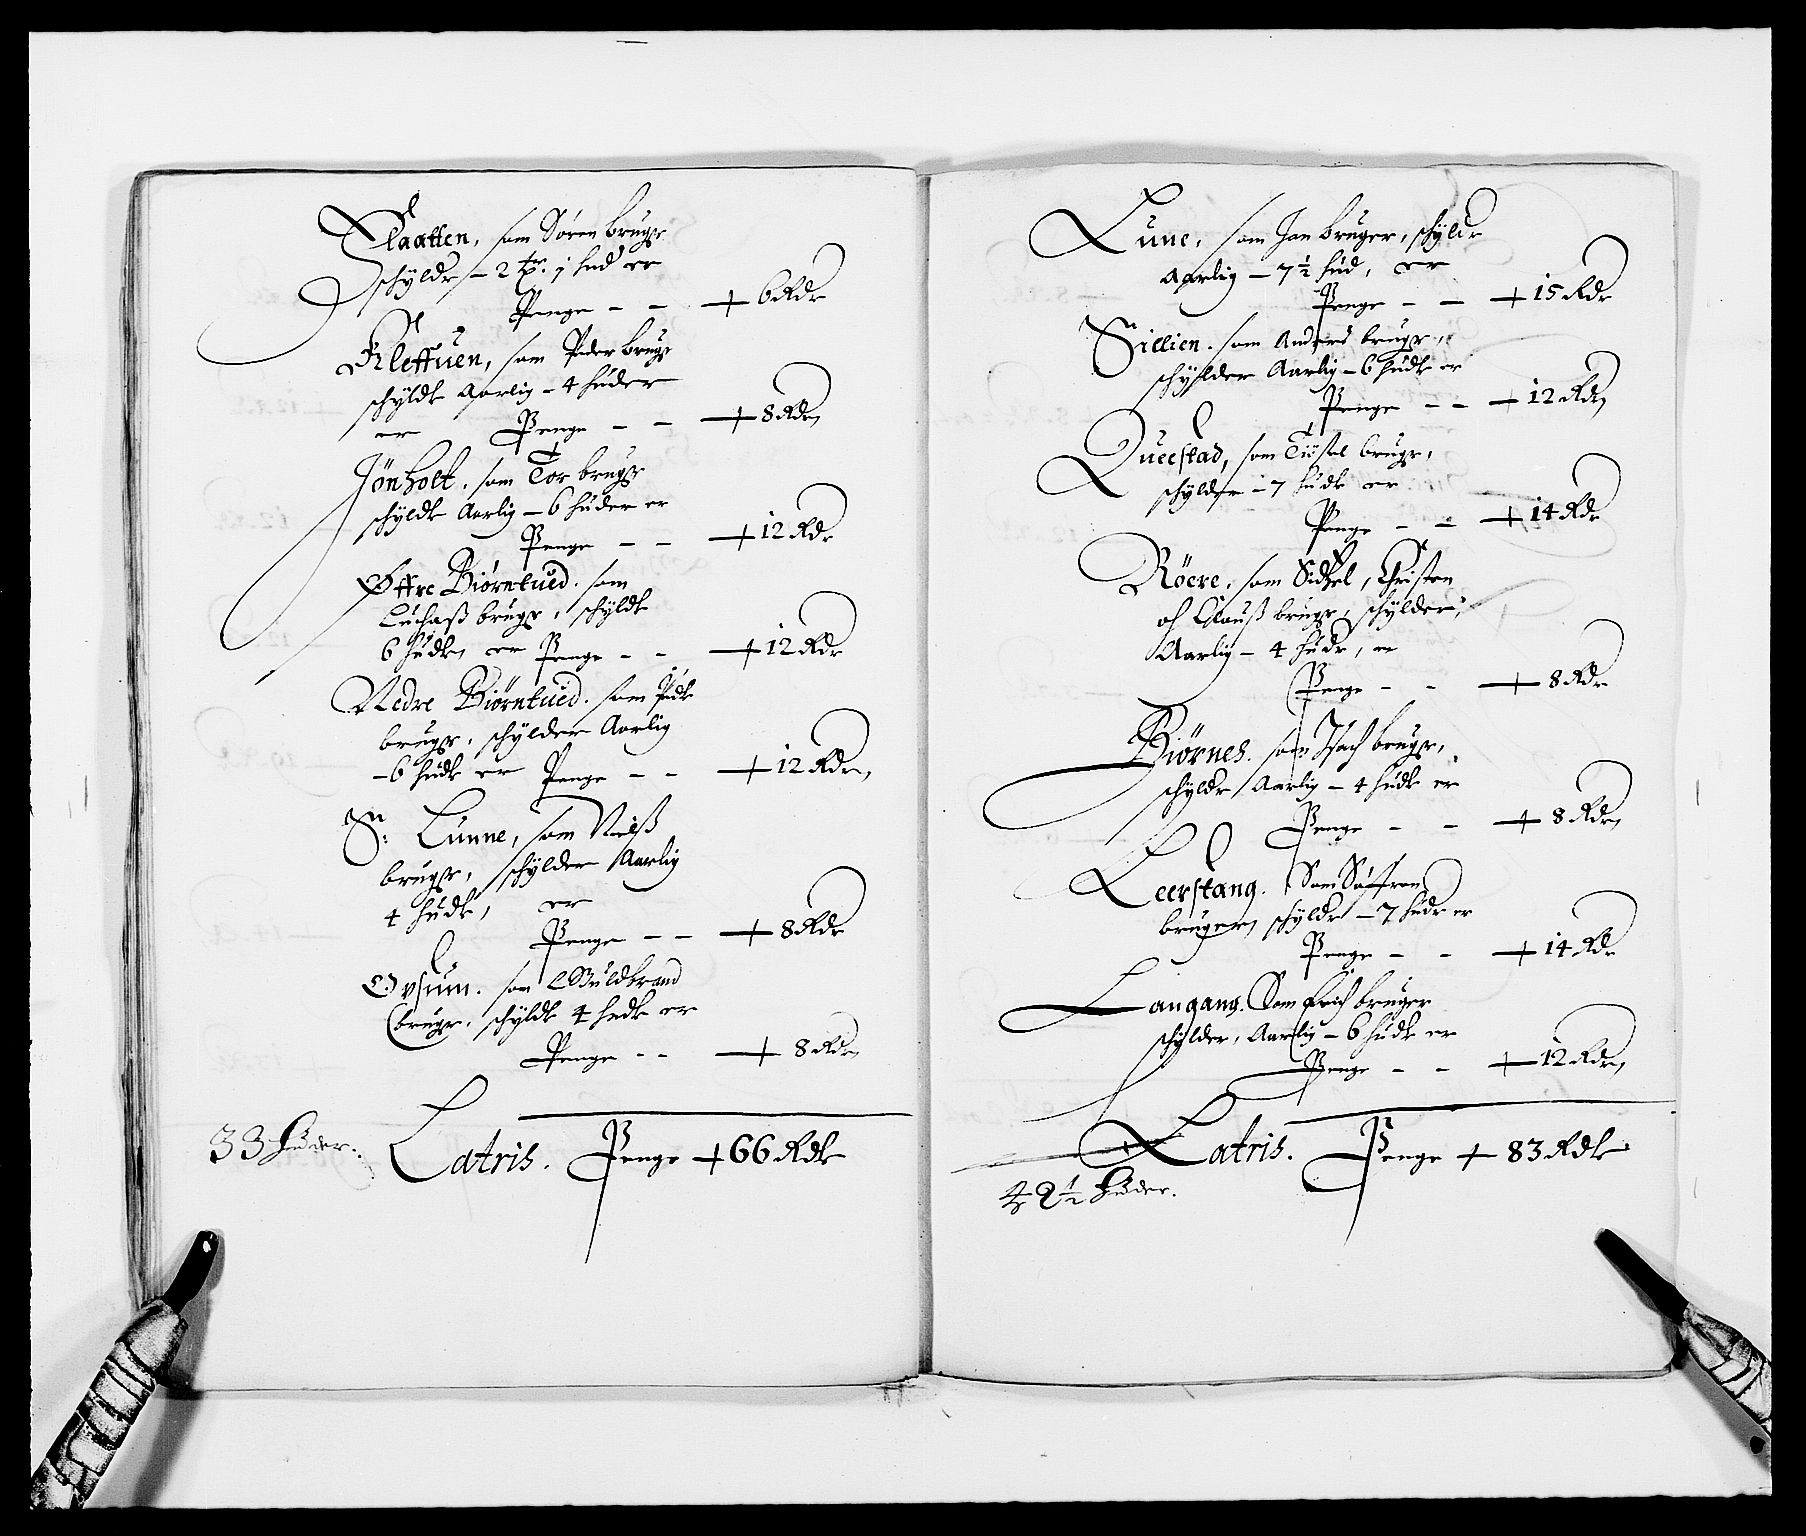 Slaatten, som Sören bruger
schyldr - 2 tr. 1 hud er
Penge - - 6 Rdr
Kleffuen, som Peder brugr
schyldr Aarlig - 4 huder
er Penge - - 8 Rdr
Jönholt. som Tor brugr
schyldr Aarlig - 6 huder er
Penge - - 12 Rdr
Øffre Biörntued. som
Luchaß brugr, schyldr
6 hudr er Penge - - 12 Rdr
Nedre Biörntued. som Pedr
brugr, schylder Aarlig
- 6 hudr er Penge - - 12 Rdr
Sr: Lunne, som Nielß
brugr, schylder Aarlig
4 hudr, er
Penge - - 8 Rdr
Ovsum. som Guldbrand
brugr, schyldr 4 hudr er
Penge - - 8 Rdr
33 huder. Latris. Penge 66 Rdr
Lune, som Jon bruger, schyldr
Aarlig - 7 1/2 hud, er
Penge - - 15 Rdr
Sillien. som Anders brugr,
schylder Aarlig - 6 hudr er
Penge - - 12 Rdr
Queestad, som brugr,
schylder - 7 hudr er
Penge - - 14 Rdr
Röere, som Sidzel, Christen
oc Clauß brugr, schylder
Aarlig - 4 hudr, er
Penge - - 8 Rdr
Biörnes. som Isach brugr,
schyldr Aarlig - 4 hudr er
Penge - - 8 Rdr
Leerstang. Som Söffren
bruger, schyldr - 7 hudr er
Penge - - 14 Rdr
Langang. Som Erich bruger
schylder, Aarlig - 6 hudr er
Penge - - 12 Rdr
Latris. Penge 83 Rdr
42 1/2 huder.